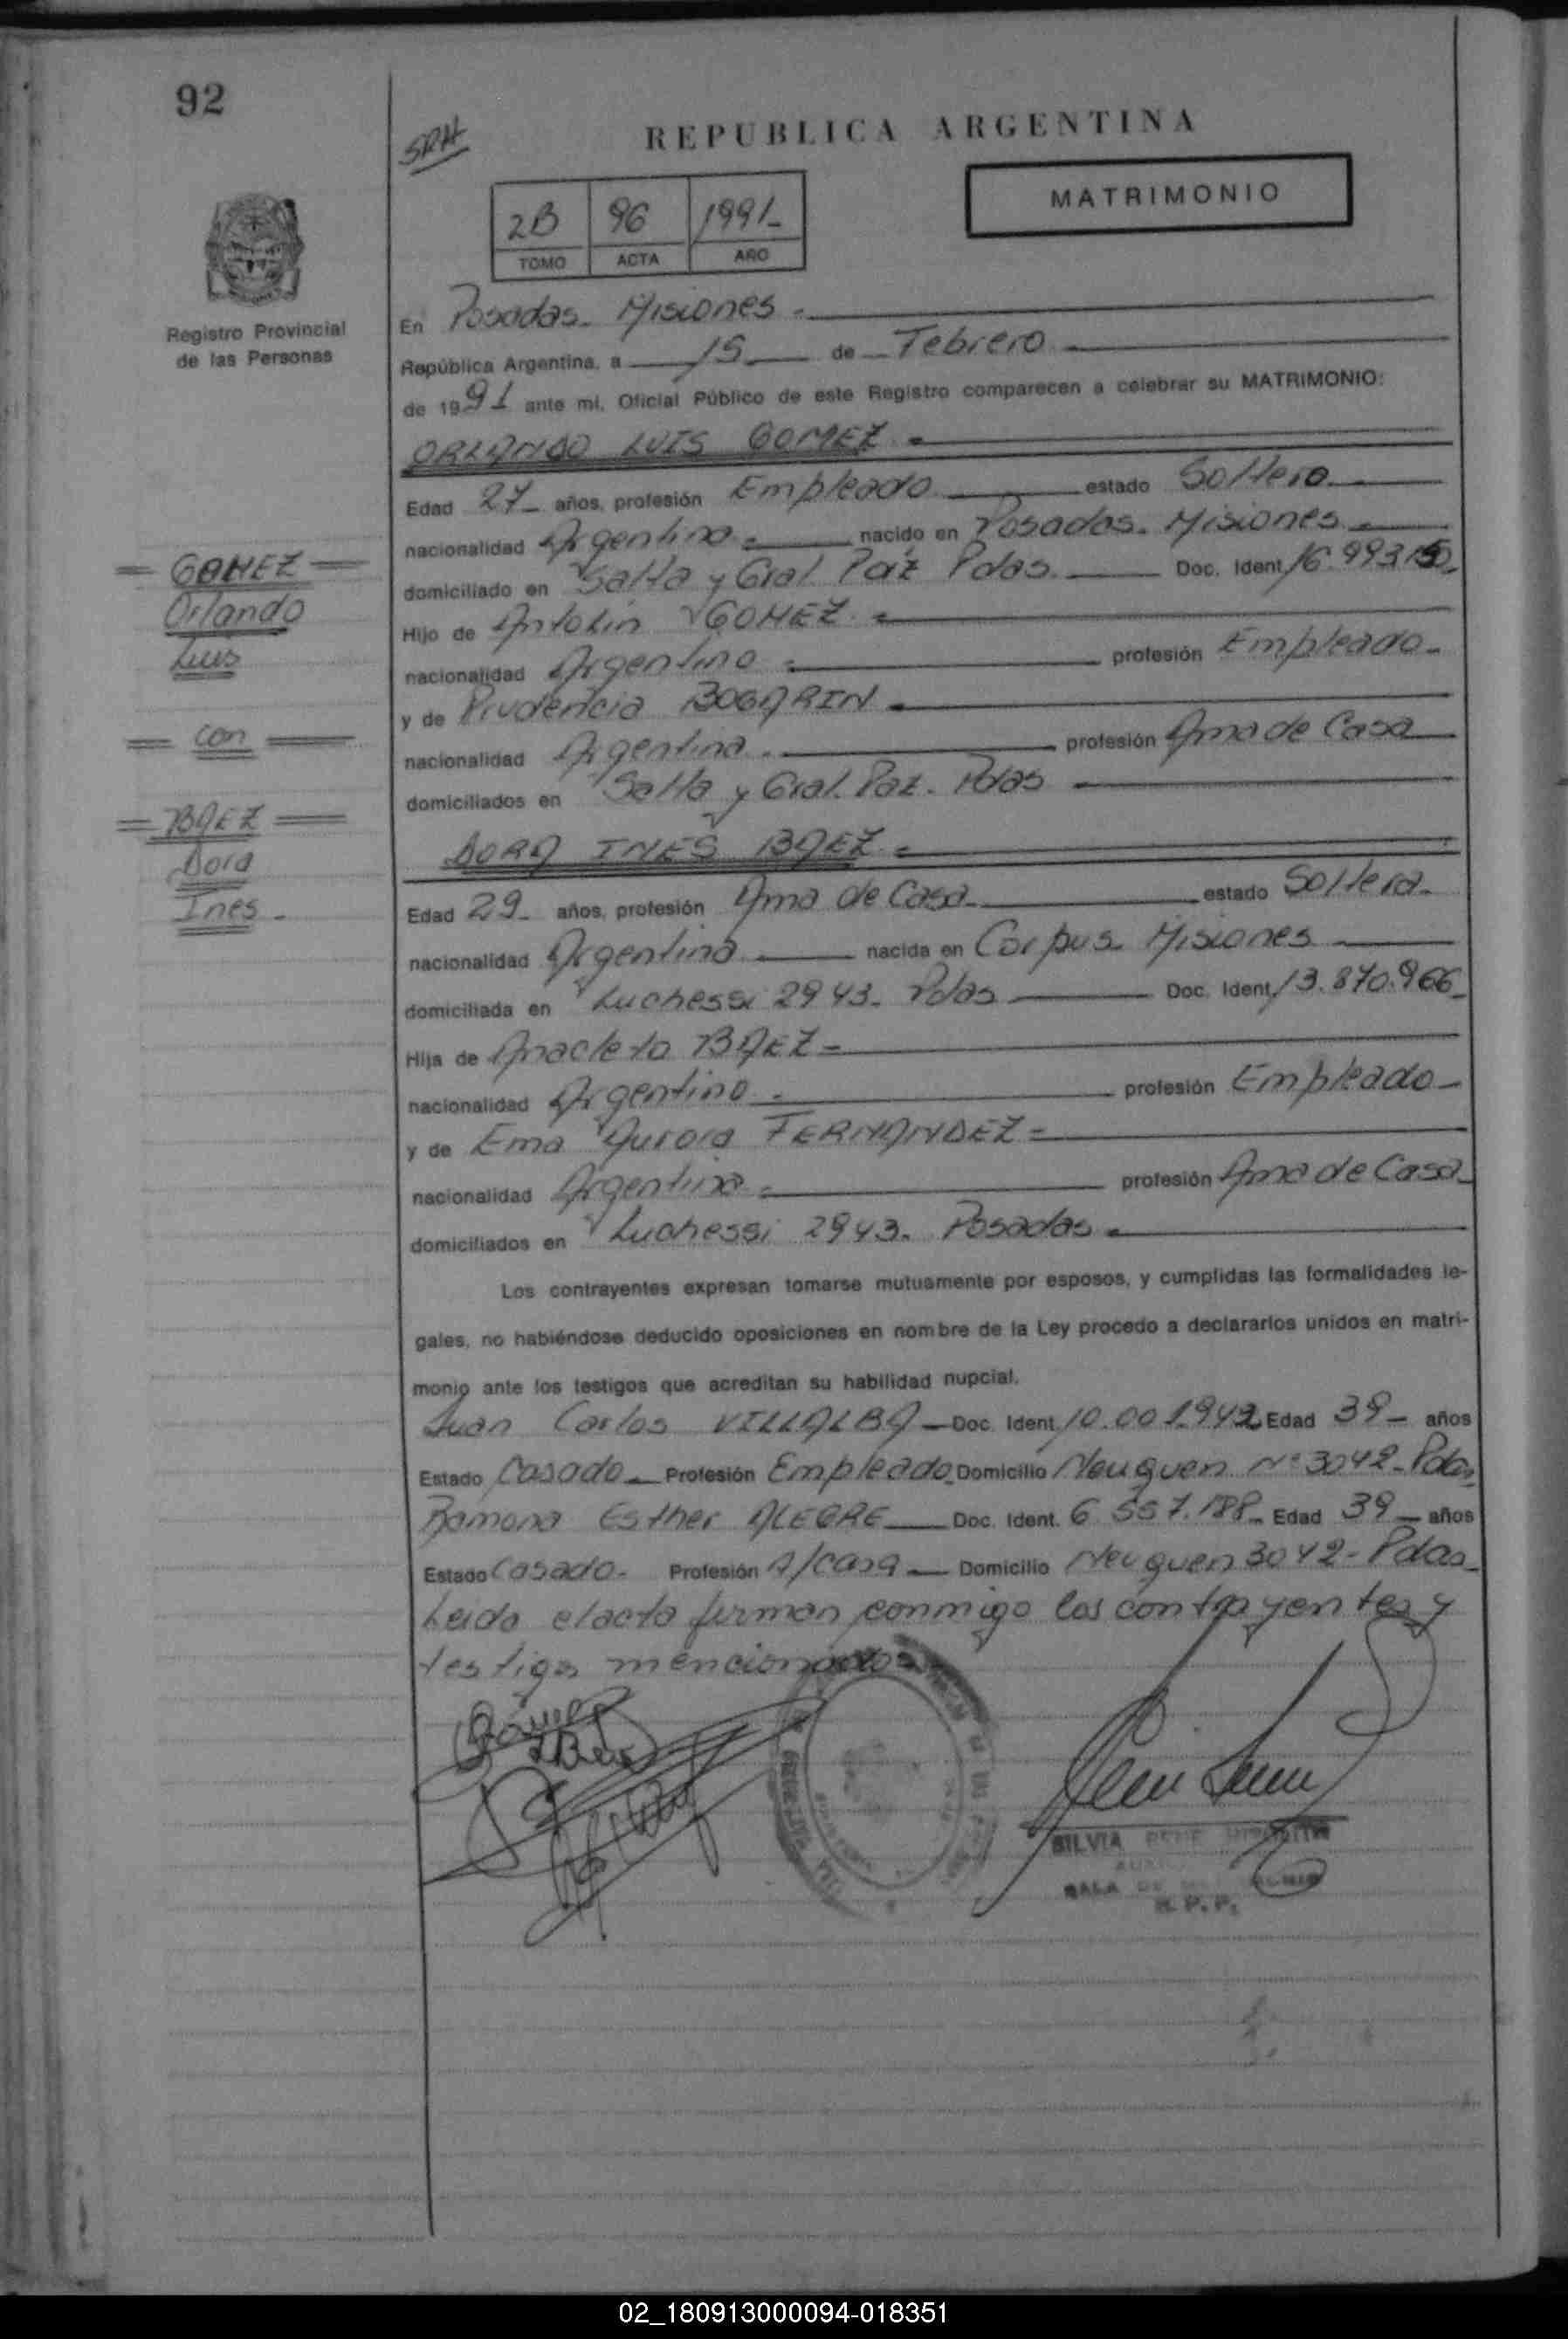 92
SRH
REPUBLICA ARGENTINA
MATRIMONIO
2B 96 1991-
TOMO ACTA AÑO
Registro Provincial
de las Personas
En Posadas. Misiones.
República Argentina, a 15 de Febrero
de 1991 ante mi, Oficial Público de este Registro comparecen a celebrar su MATRIMONIO:
ORLANDO LUIS GOMEZ.
Edad 27 años, profesión Empleado estado Soltero
nacionalidad Argentino. nacido en Posadas. Misiones
domiciliado en Salta y Gral Paz Pdas. Doc. Ident. 16.993.150
Hijo de Antolin GOMEZ.
nacionalidad Argentino profesión Empleado
y de Prudencia BOGARIN
nacionalidad Argentina. profesión Ama de Casa
domiciliados en Salta y Gral. Paz. Pdas
GOMEZ
Orlando
Luis
con
BAEZ
Dora
Ines.
DORA INES BAEZ.
Edad 29 años, profesión Ama de Casa estado Soltera
nacionalidad Argentina nacida en Corpus. Misiones
domiciliada en Luchessi 2943. Pdas Doc. Ident. 13.870.966
Hija de Anacleto BAEZ
nacionalidad Argentino. profesión Empleado
y de Ema Aurora FERNANDEZ
nacionalidad Argentina. profesión Ama de Casa
domiciliados en Luchessi 2943. Posadas
Los contrayentes expresan tomarse mutuamente por esposos, y cumplidas las formalidades le-
gales, no habiéndose deducido oposiciones en nombre de la Ley procedo a declararlos unidos en matri-
monio ante los testigos que acreditan su habilidad nupcial.
Juan Carlos VILLALBA Doc. Ident. 10.001.942 Edad 39 años
Estado Casado Profesión Empleado Domicilio Neuquen Nº 3042-Pdas
Ramona Esther ALEGRE Doc. Ident. 6.557.188 Edad 39 años
Estado Casado. Profesión A/casa Domicilio Neuquen 3042-Pdas
Leida el acta firman conmigo los contrayentes y
testigos mencionados
SILVIA RENE
SALA DE
R. P. P.
02_180913000094-018351